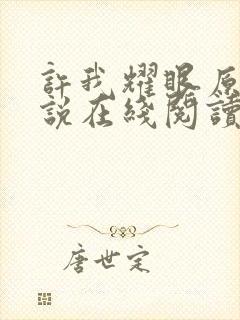 許我耀眼原
說在綫閱讀
唐世定